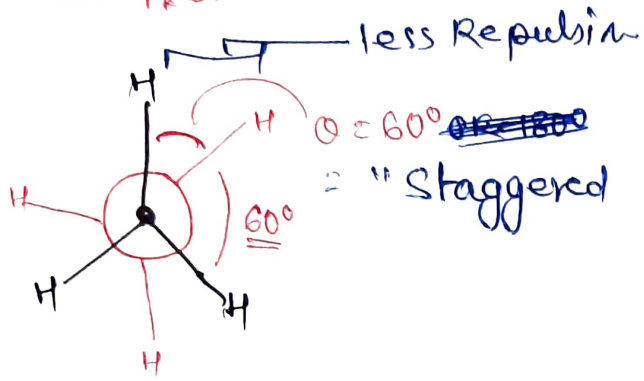 less Repulsin
H
H
θ = 60° OR = 180°
H
= " Staggered
60°
H
H
H